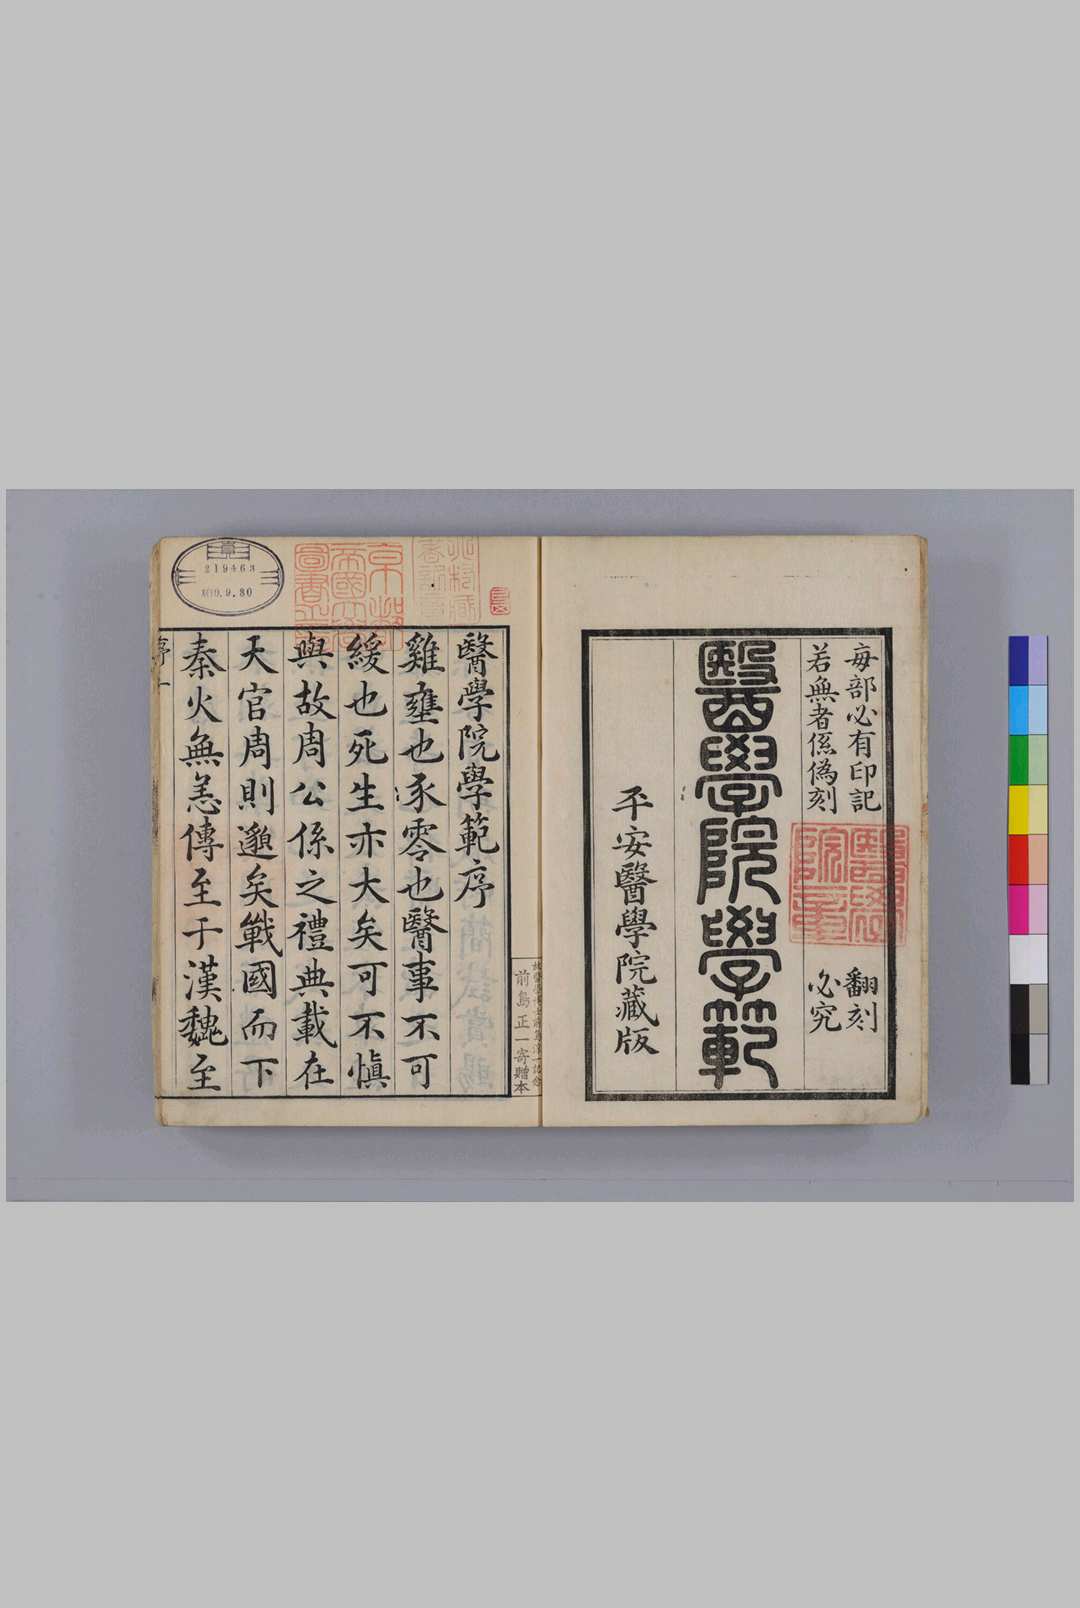 毎部必有印記
若無者係偽刻
翻刻
必究
醫學院學範
平安醫學院藏版
前島正一寄贈本
醫學院學範序
雞壅也豕零也醫事不可
緩也死生亦大矣可不愼
與故周公係之禮典載在
天官周則邈矣戰國而下
秦火無恙傳至于漢魏至
序
一
219463
9.9.30